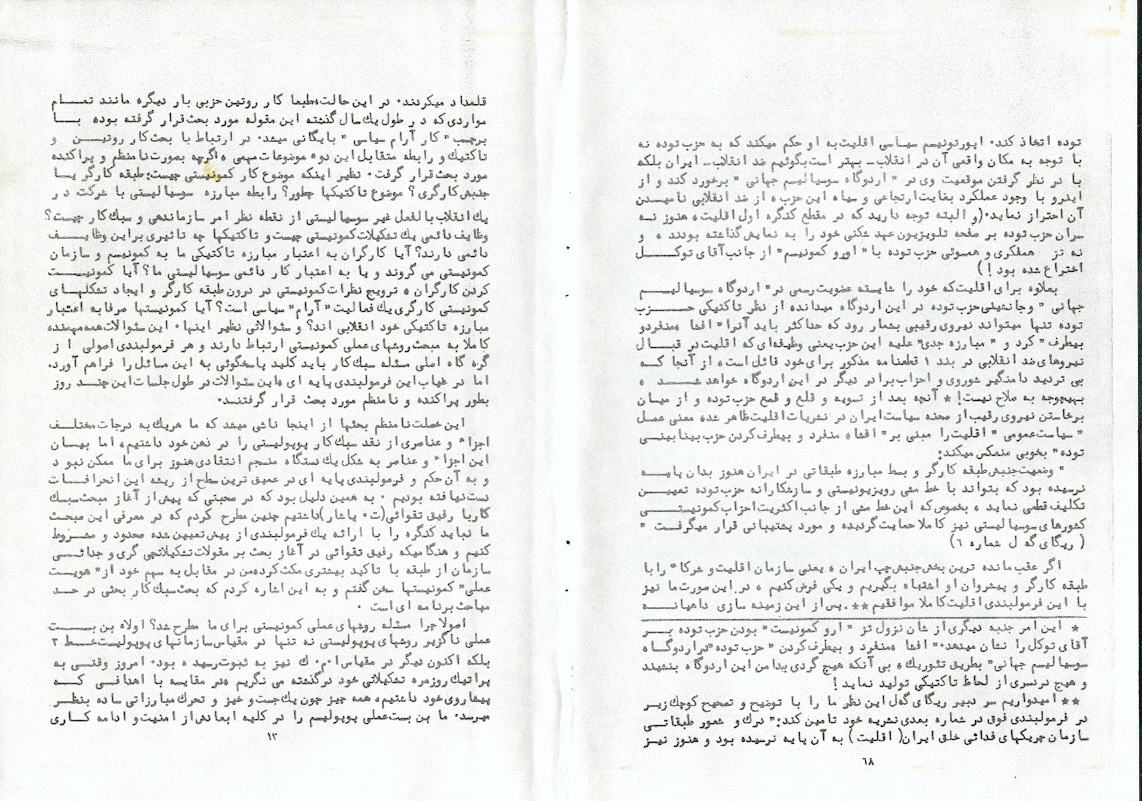 توده اتخاذ کند. اپورتونیسم سیاسی اقلیت به او حکم میکند که به حزب توده نه
با توجه به مکان واقعی آن در انقلاب ـ بهتر است بگوئیم ضد انقلاب ـ ایران بلکه
با در نظر گرفتن موقعیت وی در " اردوگاه سوسیالیسم جهانی " برخورد کند و از
اینرو با وجود عملکرد بغایت ارتجاعی و سیاه این حزب، از ضد انقلابی نامیدن
آن احتراز نماید.(و البته توجه دارید که در مقطع کنگره اول اقلیت، هنوز نه
سران حزب توده بر صفحه تلویزیون عهد شکنی خود را به نمایش گذاشته بودند، و
نه تز همفکری و همسوئی حزب توده با " اورو کمونیسم" از جانب آقای توکل
اختراع شده بود ! )
بعلاوه برای اقلیت که خود را شایسته عضویت رسمی در " اردوگاه سوسیالیسم
جهانی " و جانشینی حزب توده در این اردوگاه میداند، از نظر تاکتیکی حزب
توده تنها میتواند نیروی رقیبی بشمار رود که حداکثر باید آنرا " افشا، منفرد و
بیطرف " کرد و " مبارزه جدی" علیه این حزب یعنی وظیفه ای که اقلیت در قبال
نیروهای ضد انقلابی در بند ۱ قطعنامه مذکور برای خود قائل است، از آنجا که
بی تردید دامنگیر شوروی و احزاب برادر دیگر در این اردوگاه خواهد شد،
بهیچوجه به صلاح نیست! * آنچه بعد از تسویه و قلع و قمع حزب توده و از میان
برخاستن نیروی رقیب از صحنه سیاست ایران در نشریات اقلیت ظاهر شده معنی عمل
"سیاست عمومی " اقلیت را مبنی بر " افشا، منفرد و بیطرف کردن حزب بینابینی
توده " بخوبی منعکس میکند:
" وضعیت جنبش طبقه کارگر و بسط مبارزه طبقاتی در ایران هنوز بدان پایه
نرسیده بود که بتواند با خط مشی رویزیونیستی و سازشکارانه حزب توده تعیین
تکلیف قطعی نماید ، بخصوص که این خط مشی از جانب اکثریت احزاب کمونیستی
کشورهای سوسیالیستی نیز کاملا حمایت گردیده و مورد پشتیبانی قرار میگرفت "
( ریگای گه ل شماره ٦)
اگر عقب مانده ترین بخش جنبش چپ ایران ، یعنی سازمان اقلیت و شرکا ٔ را با
طبقه کارگر و پیشروان او اشتباه بگیریم و یکی فرض کنیم ، در این صورت ما نیز
با این فرمولبندی اقلیت کاملا موافقیم **. پس از این زمینه سازی داهیانه
* این امر جنبه دیگری از شان نزول تز " ارو کمونیست" بودن حزب توده بر
آقای توکل را نشان میدهد. " افشا ، منفرد و بیطرف کردن " حزب توده "در اردوگاه
سوسیالیسم جهانی" بطریق تئوریک، بی آنکه هیچ گردی بدامن این اردوگاه بنشیند
و هیچ دردسری از لحاظ تاکتیکی تولید نماید!
** امیدواریم سر دبیر ریگای گه ل این نظر ما را با توضیح و تصحیح کوچک زیر
در فرمولبندی فوق در شماره بعدی نشریه خود تامین کند:" درک و شعور طبقاتی
سازمان چریکهای فدائی خلق ایران( اقلیت ) به آن پایه نرسیده بود و هنوز نیز
٦٨
قلمداد میکردند. در این حالت، طبعا کار روتین حزبی بار دیگر، مانند تمام
مواردی که در طول یک سال گذشته این مقوله مورد بحث قرار گرفته بود، با
برچسب " کار آرام سیاسی " بایگانی میشد. در ارتباط با بحث کار روتین و
تاکتیک و رابطه متقابل این دو، موضوعات مهمی ، اگرچه بصورت نامنظم و پراکنده
مورد بحث قرار گرفت. نظیر اینکه موضوع کار کمونیستی چیست؛ طبقه کارگر یا
جنبش کارگری؟ موضوع تاکتیکها چطور؟ رابطه مبارزه سوسیالیستی با شرکت در
یک انقلاب بالفعل غیر سوسیالیستی از نقطه نظر امر سازماندهی و سبک کار چیست؟
وظایف دائمی یک تشکیلات کمونیستی چیست و تاکتیکها چه تاثیری بر این وظایف
دائمی دارند؟ آیا کارگران به اعتبار مبارزه تاکتیکی ما به کمونیسم و سازمان
کمونیستی می گروند و یا به اعتبار کار دائمی سوسیالیستی ما؟ آیا کمونیست
کردن کارگران ، ترویج نظرات کمونیستی در درون طبقه کارگر و ایجاد تشکلهای
کمونیستی کارگری یک فعالیت " آرام " سیاسی است؟ آیا کمونیستها صرفا به اعتبار
مبارزه تاکتیکی خود انقلابی اند؟ و سئوالاتی نظیر اینها. این سئوالات همه مهمند
کاملا به مبحث روشهای عملی کمونیستی ارتباط دارند و هر فرمولبندی اصولی از
گره گاه اصلی مسئله سبک کار باید کلید پاسخگوئی به این مسائل را فراهم آورد،
اما در غیاب این فرمولبندی پایه ای ، این سئوالات در طول جلسات این چند روز
بطور پراکنده و نامنظم مورد بحث قرار گرفتند.
این خصلت نامنظم بحثها از اینجا ناشی میشد که ما هریک به درجات مختلف
اجزا ٔ و عناصری از نقد سبک کار پوپولیستی را در ذهن خود داشتیم، اما بیان
این اجزا ٔ و عناصر به شکل یک دستگاه منسجم انتقادی هنوز برای ما ممکن نبود
و به آن حکم و فرمولبندی پایه ای در عمیق ترین سطح از ریشه این انحرافات
دست نیافته بودیم . به همین دلیل بود که در صحبتی که پیش از آغاز مبحث سبک
کار با رفیق تقوائی(ت. یاشار)داشتیم چنین مطرح کردم که در معرفی این مبحث
ما نباید کنگره را با ارائه یک فرمولبندی از پیش تعیین شده محدود و مشروط
کنیم و هنگامیکه رفیق تقوائی در آغاز بحث بر مقولات تشکیلاتچی گری و جدائی
سازمان از طبقه با تاکید بیشتری مکث کرد، من در مقابل به سهم خود از" هویت
عملی" کمونیستها سخن گفتم و به این اشاره کردم که بحث سبک کار بحثی در حد
مباحث برنامه ای است .
اصولا چرا مسئله روشهای عملی کمونیستی برای ما مطرح شد؟ اولا، بن بست
عملی ناگزیر روشهای پوپولیستی نه تنها در مقیاس سازمانهای پوپولیست خط ٣
بلکه اکنون دیگر در مقیاس ا.م. ک نیز به ثبوت رسیده بود. امروز وقتی به
پراتیک روزمره تشکیلاتی خود در گذشته می نگریم ، در مقایسه با اهدافی که
پیشاروی خود داشتیم، همه چیز چون یک جست و خیز و تحرک مبارزاتی ساده بنظر
میرسد. ما بن بست عملی پوپولیسم را در کلیه ابعادش از امنیت و ادامه کاری
١٣